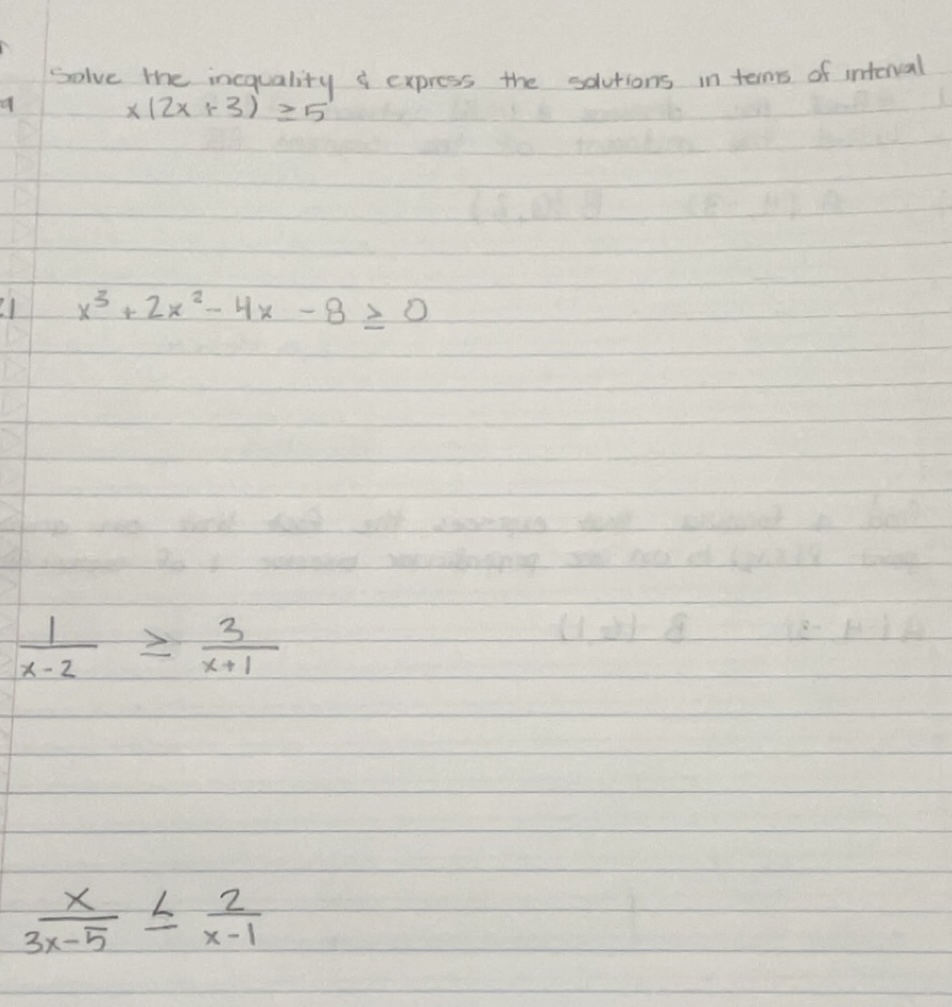 Solve the inequality & express the solutions in terms of interval
x(2x + 3) ≥ 5
x³ + 2x² - 4x - 8 ≥ 0
1/(x-2) ≥ 3/(x+1)
x/(3x-5) ≤ 2/(x-1)